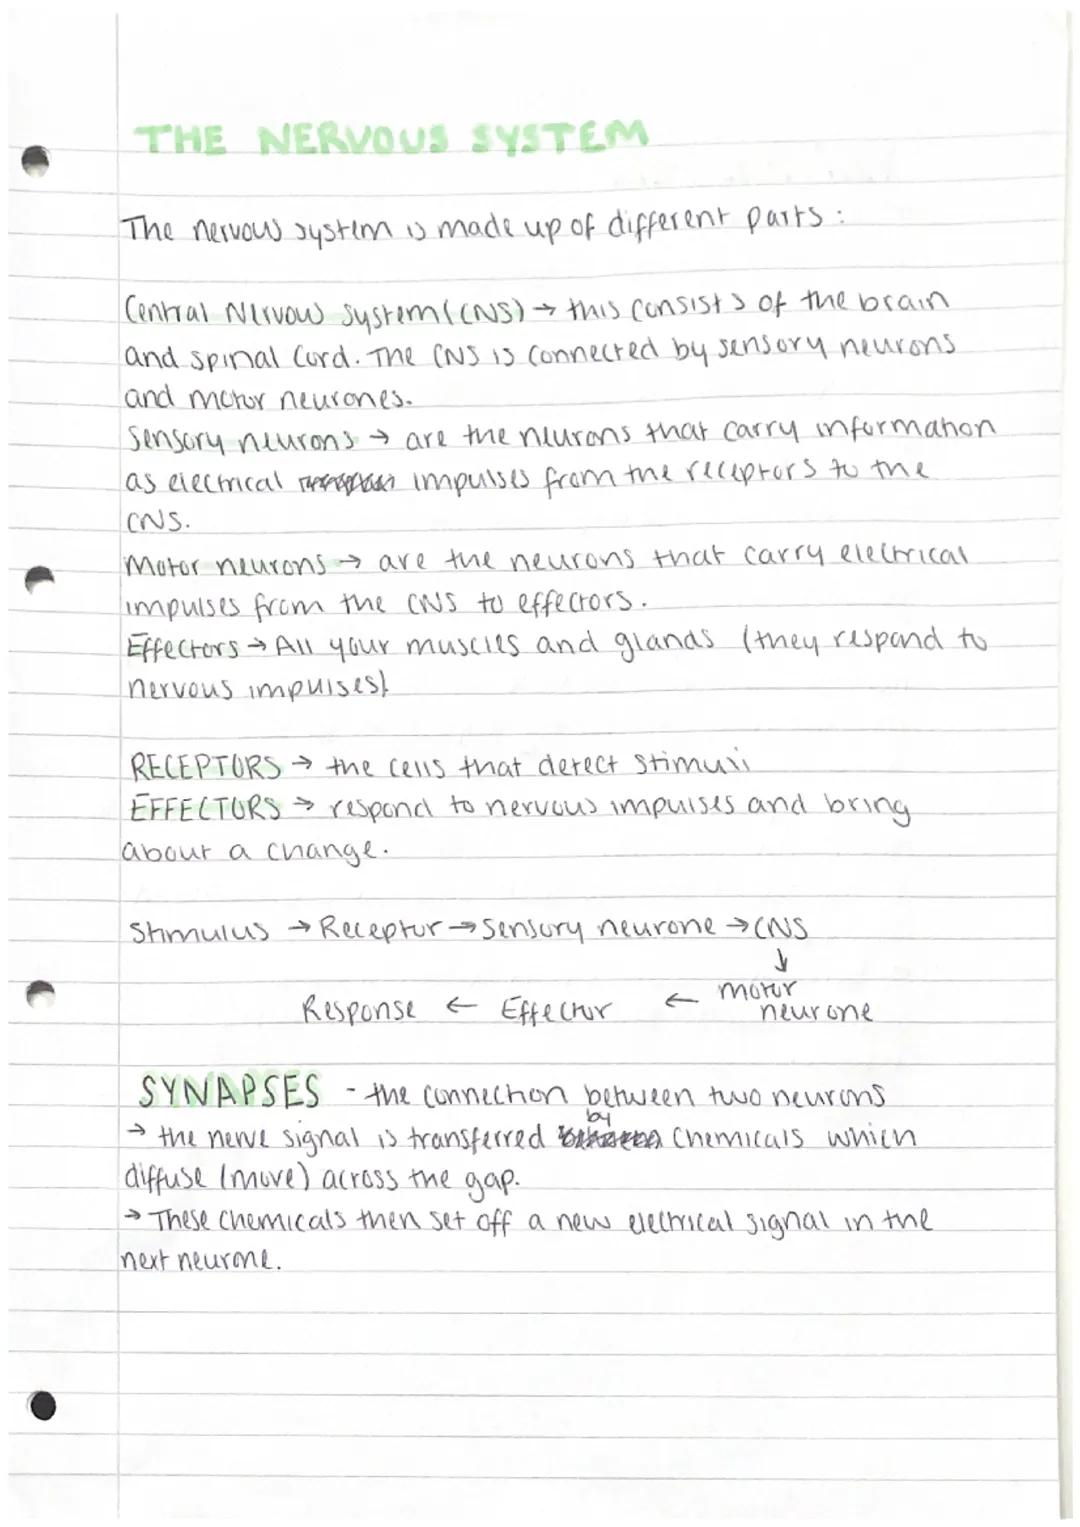 THE NERVOUS SYSTEM
The nervous system is made up of different parts :
Central Nervous System (CNS) → this consists of the brain
and spinal cord. The CNS is connected by sensory neurons
and motor neurones.
Sensory neurons → are the neurons that carry information
as electrical impulses from the receptors to the
CNS.
Motor neurons → are the neurons that carry electrical
impulses from the CNS to effectors.
Effectors → All your muscles and glands (they respond to
nervous impulses)
RECEPTORS → the cells that detect stimuli
EFFECTORS → respond to nervous impulses and bring
about a change.
Stimulus → Receptor → Sensory neurone → CNS
↓
Response ← Effector ← motor
neurone
SYNAPSES - the connection between two neurons
→ the nerve signal is transferred by chemicals which
diffuse (move) across the gap.
→ These chemicals then set off a new electrical signal in the
next neurone.